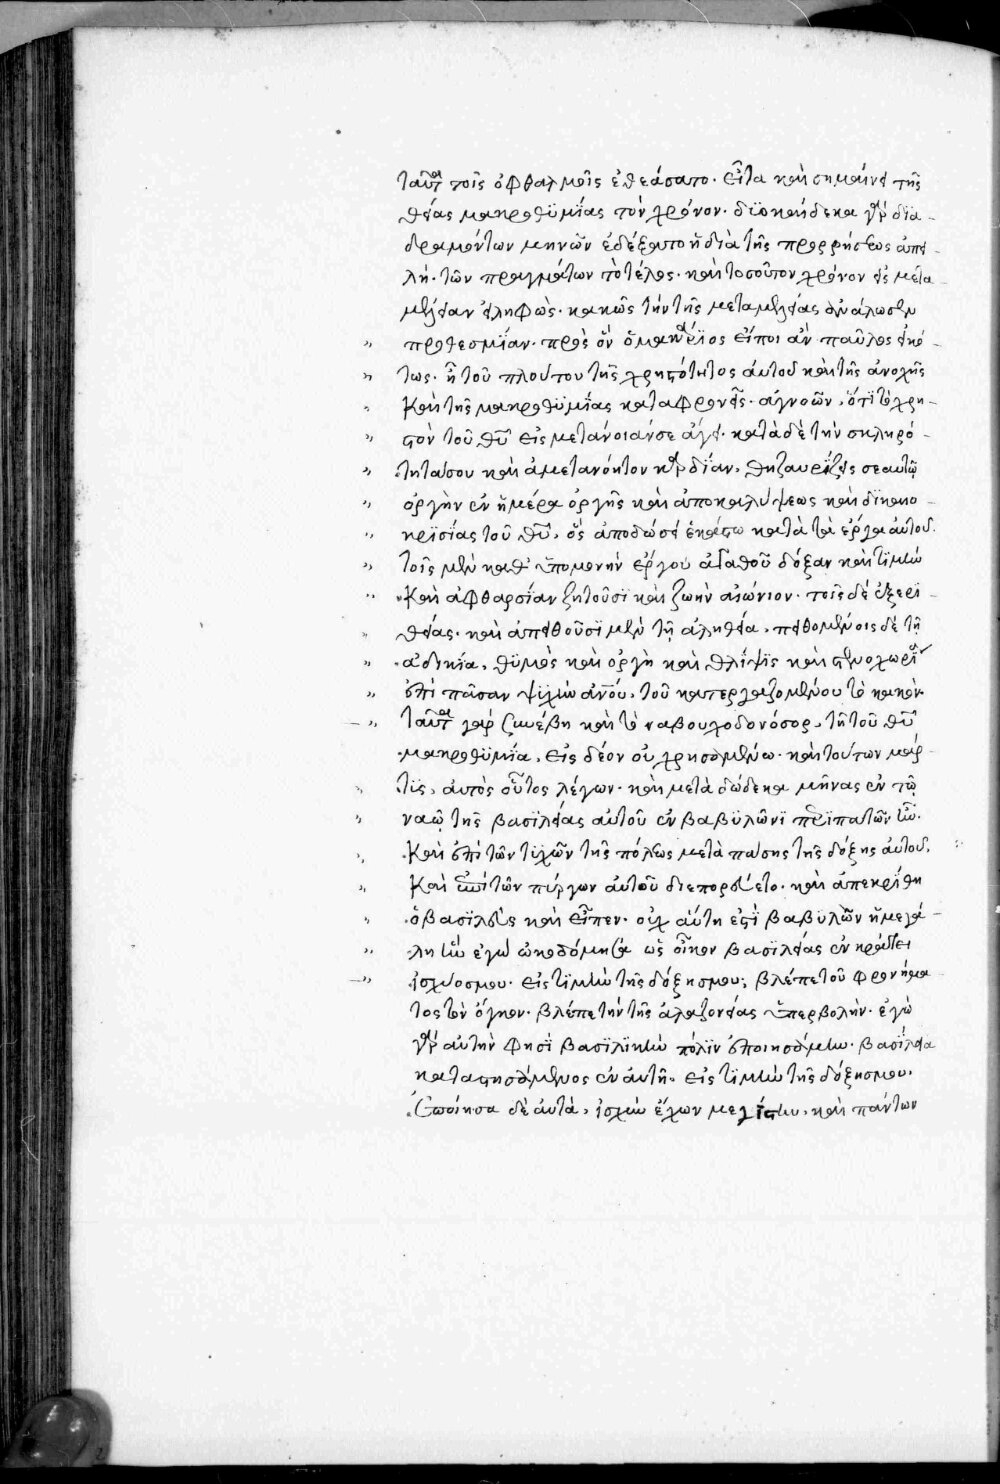 ταῦτα τοῖς ὀφθαλμοῖς ἐθεάσατο· εἶτα καὶ σημαίνει τῆς
θείας μακροθϋμΐας τὸν χρόνον· δϋοκαίδεκα γὰρ δϊα-
δραμόντων μηνῶν ἐδέξαντο ἡ διὰ τῆς προρρήσεως ἀπει-
λή· τῶν πραγμάτων τὸ τέλος· καὶ τοσοῦτον χρόνον εἰς μετα-
μέλειαν εἰληφὼς· κακῶς τὴν τῆς μεταμελείας ἀνάλωσεν
προθεσμΐαν· πρὸς ὃν ὁ μακάρϊος εἴποι ἂν παῦλος εἰκό-
τως· ἢ τοῦ πλούτου τῆς χρηστότητος αὐτοῦ καὶ τῆς ἀνοχῆς
καὶ τῆς μακροθϋμΐας καταφρονεῖς· ἀγνοῶν, ὅτϊ τὸ χρη-
στὸν τοῦ θῦ εἰς μετάνοιάν σε ἄγει· κατὰ δὲ τὴν σκληρό-
τητά σου καὶ ἀμετανόητον καρδΐαν, θησαυρΐζεις σεαυτῷ
ὀργὴν ἐν ἡμέρα ὀργῆς καὶ ἀποκαλύψεως καὶ δϊκαιο-
κρϊσΐας τοῦ θῦ, ὃς ἀποδώσει ἑκάστω κατὰ τὰ ἔργα αὐτοῦ·
τοῖς μὲν καθ' ὑπομονὴν ἔργου ἀγαθοῦ δόξαν καὶ τϊμὴν
καὶ ἀφθαρσΐαν ζητοῦσϊ καὶ ζωὴν αἰώνιον· τοῖς δὲ ἐξ ἐρϊ-
θείας· καὶ ἀπειθοῦσϊ μὲν τῇ ἀληθεία, πειθομένοις δὲ τῇ
ἀδικία, θϋμὸς καὶ ὀργὴ καὶ θλΐψϊς καὶ στενοχωρΐα
ἐπὶ πᾶσαν ψϋχὴν ἀνου, τοῦ κατεργαζομένου τὸ κακὸν·
ταῦτα γὰρ συνέβη καὶ τῷ ναβουχοδονόσορ, τῇ τοῦ θῦ
μακροθϋμΐα, εἰς δέον οὐ χρησαμένω· καὶ τούτων μάρ-
τϋς, αὐτὸς οὗτος λέγων· καὶ μετὰ δώδεκα μῆνας ἐν τῷ
ναῷ τῆς βασϊλείας αὐτοῦ ἐν βαβϋλῶνϊ περϊπατῶν ἦν·
καὶ ἐπὶ τῶν τειχῶν τῆς πόλεως μετὰ πάσης τῆς δόξης αὐτοῦ,
καὶ ἐπὶ τῶν πύργων αὐτοῦ διεπορεύετο· καὶ ἀπεκρΐθη
ὁ βασϊλεὺς καὶ εἶπεν· οὐχ αὕτη ἐστὶ βαβϋλῶν ἡ μεγά-
λη ἣν ἐγὼ ὠκοδόμησα ὡς οἶκον βασϊλείας ἐν κράτει
ἰσχύος μου· εἰς τϊμὴν τῆς δόξης μου; βλέπε τοῦ φρονήμα
τος τὸν ὄγκον· βλέπε τὴν τῆς ἀλαζονείας ὑπερβολὴν· ἐγὼ
γὰρ αὐτὴν φησϊ βασϊλικὴν πόλϊν ἐποιησάμην· βασΐλεια
καταστησάμενος ἐν αὐτῆ· εἰς τϊμὴν τῆς δόξης μου·
ἐποίησα δὲ αὐτὰ, ἰσχὺν ἔχων μεγίστην, καὶ πάντων